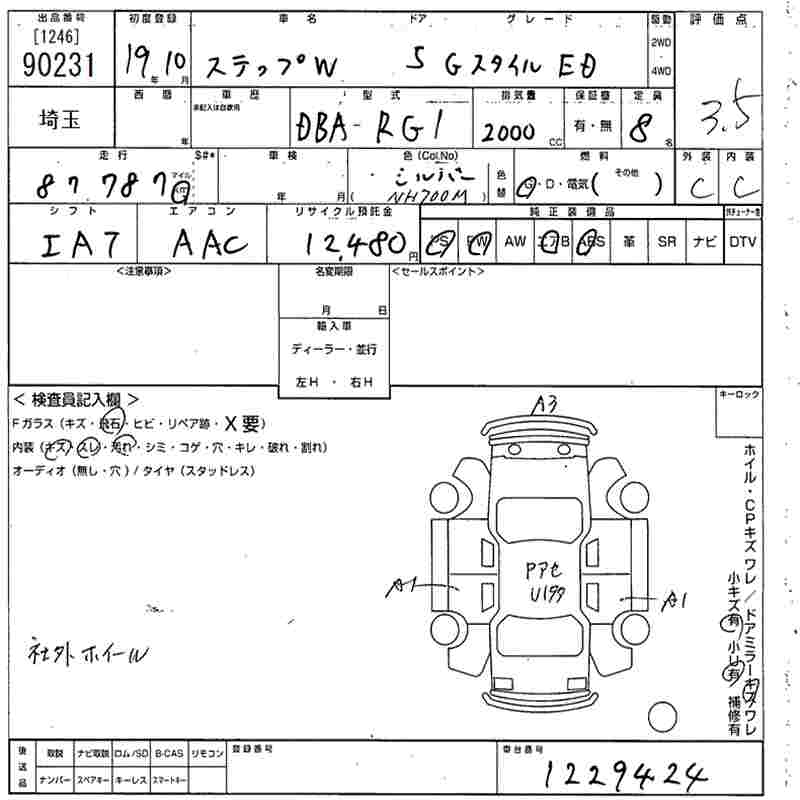 出品番号 初度登録 車名 ドア グレード 駆動 評価点
[1246]
90231 19年 10月 ステップW 5 Gスタイル ED 2WD 4WD 3.5
西暦 車歴 型式 排気量 保証書 定員
埼玉 年 未記入は自家用 DBA-RG1 2000 CC 有・無 8名
走行 S#* 車検 色(Col,No) 燃料 外装 内装
87,787 マイル Km 年 月 シルバー 色替 G・D・電気( その他 ) C C
(NH700M)
シフト エアコン リサイクル預託金 純正装備品
IA7 AAC 12,480円 PS PW AW エアB ABS 革 SR ナビ DTV
<注意事項> 名変期限 <セールスポイント>
月 日
輸入車
ディーラー・並行
左H ・ 右H
< 検査員記入欄 > キーロック
Fガラス(キズ・飛石・ヒビ・リペア跡・X要)
内装(キズ・スレ・汚れ・シミ・コゲ・穴・キレ・破れ・割れ)
オーディオ(無し・穴)/タイヤ(スタッドレス)
A3
Pアセ
U1多
A1
A1
社外ホイール
ホイル・CPキズワレ/ドアミラーキズワレ
小キズ有 小U有 補修有
後送品 取説 ナビ取説 ロム/SD B-CAS リモコン 登録番号 車台番号
ナンバー スペアキー キーレス スマートキー 1229424